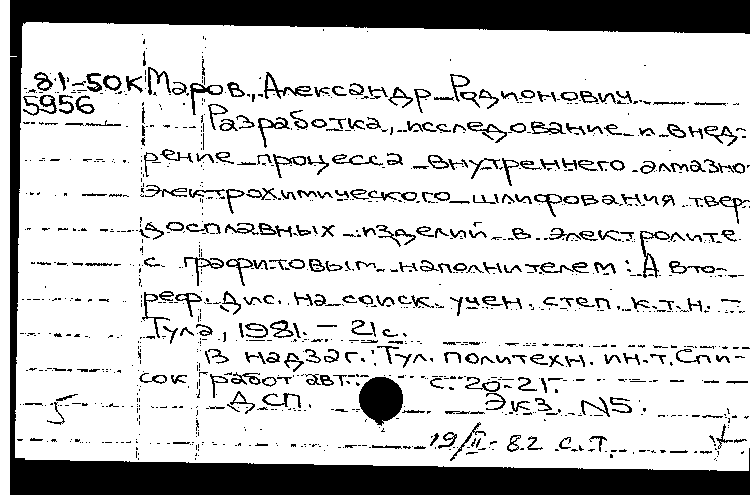 81-50К Маров, Александр Родионович
5956
Разработка, исследование и внед-
рение процесса внутреннего алмазно-
электрохимического шлифования твер-
досплавных изделий в электролите
с графитовым наполнителем: Авто-
реф. дис. на соиск. учен. степ. к.т.н. -
Тула, 1981. - 21с.
В надзаг.: Тул. политехн. ин-т. Спи-
сок работ авт.: с. 20-21.
ДСП. Экз. N5.
5
19/II-82 с.т.